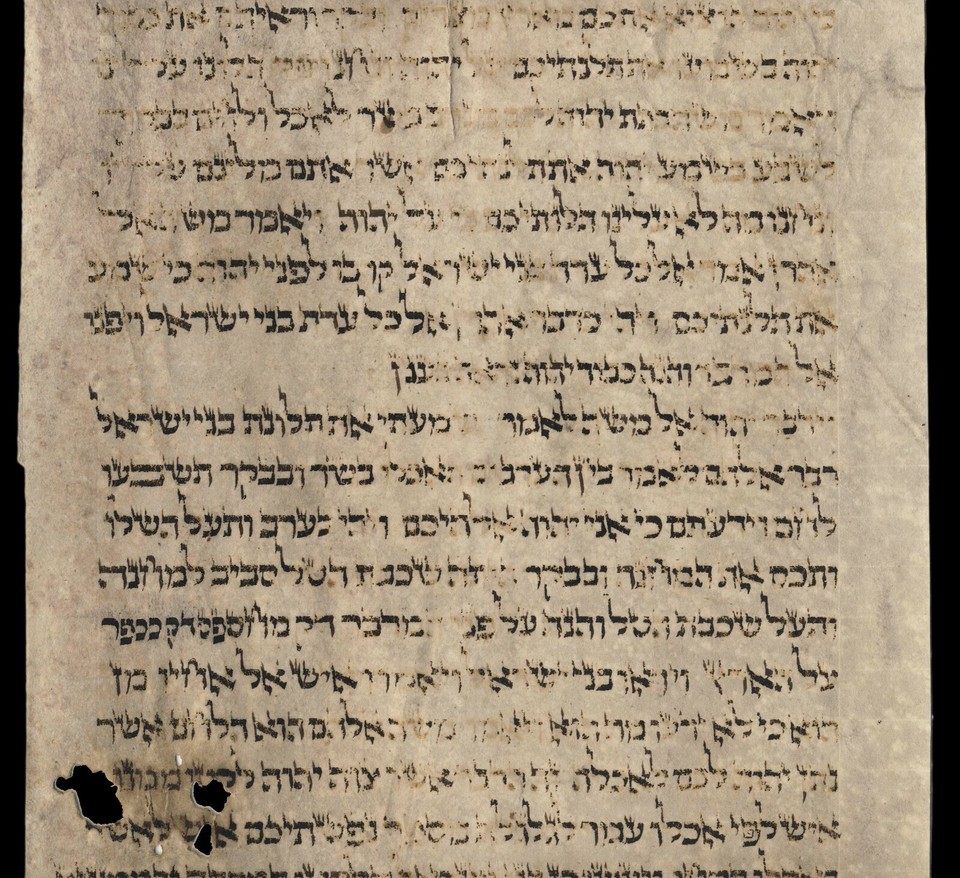 כי יהוה הוציא אתכם מארץ מצרים ובקר וראיתם את כבוד
יהוה בשמעו את תלנתיכם על יהוה ונחנו מה תלונו עלינו
ויאמר משה בתת יהוה לכם בשר לאכל ולחם בבקר
לשבע בשמע יהוה את תלנתיכם אשר אתם מלינם עליו
ונחנו מה לא עלינו תלנתיכם כי על יהוה ויאמר משה אל
אהרן אמר אל כל עדת בני ישראל קרבו לפני יהוה כי שמע
את תלנתיכם ויהי כדבר אהרן אל כל עדת בני ישראל ויפנו
אל המדבר והנה כבוד יהוה נראה בענן
וידבר יהוה אל משה לאמר שמעתי את תלונת בני ישראל
דבר אלהם לאמר בין הערבים תאכלו בשר ובבקר תשבעו
לחם וידעתם כי אני יהוה אלהיכם ויהי בערב ותעל השלו
ותכס את המחנה ובבקר היתה שכבת הטל סביב למחנה
ותעל שכבת הטל והנה על פני המדבר דק מחספס דק ככפר
על הארץ ויראו בני ישראל ויאמרו איש אל אחיו מן
הוא כי לא ידעו מה הוא ויאמר משה אלהם הוא הלחם אשר
נתן יהוה לכם לאכלה זה הדבר אשר צוה יהוה לקטו ממנו
איש לפי אכלו עמר לגלגלת מספר נפשתיכם איש לאשר